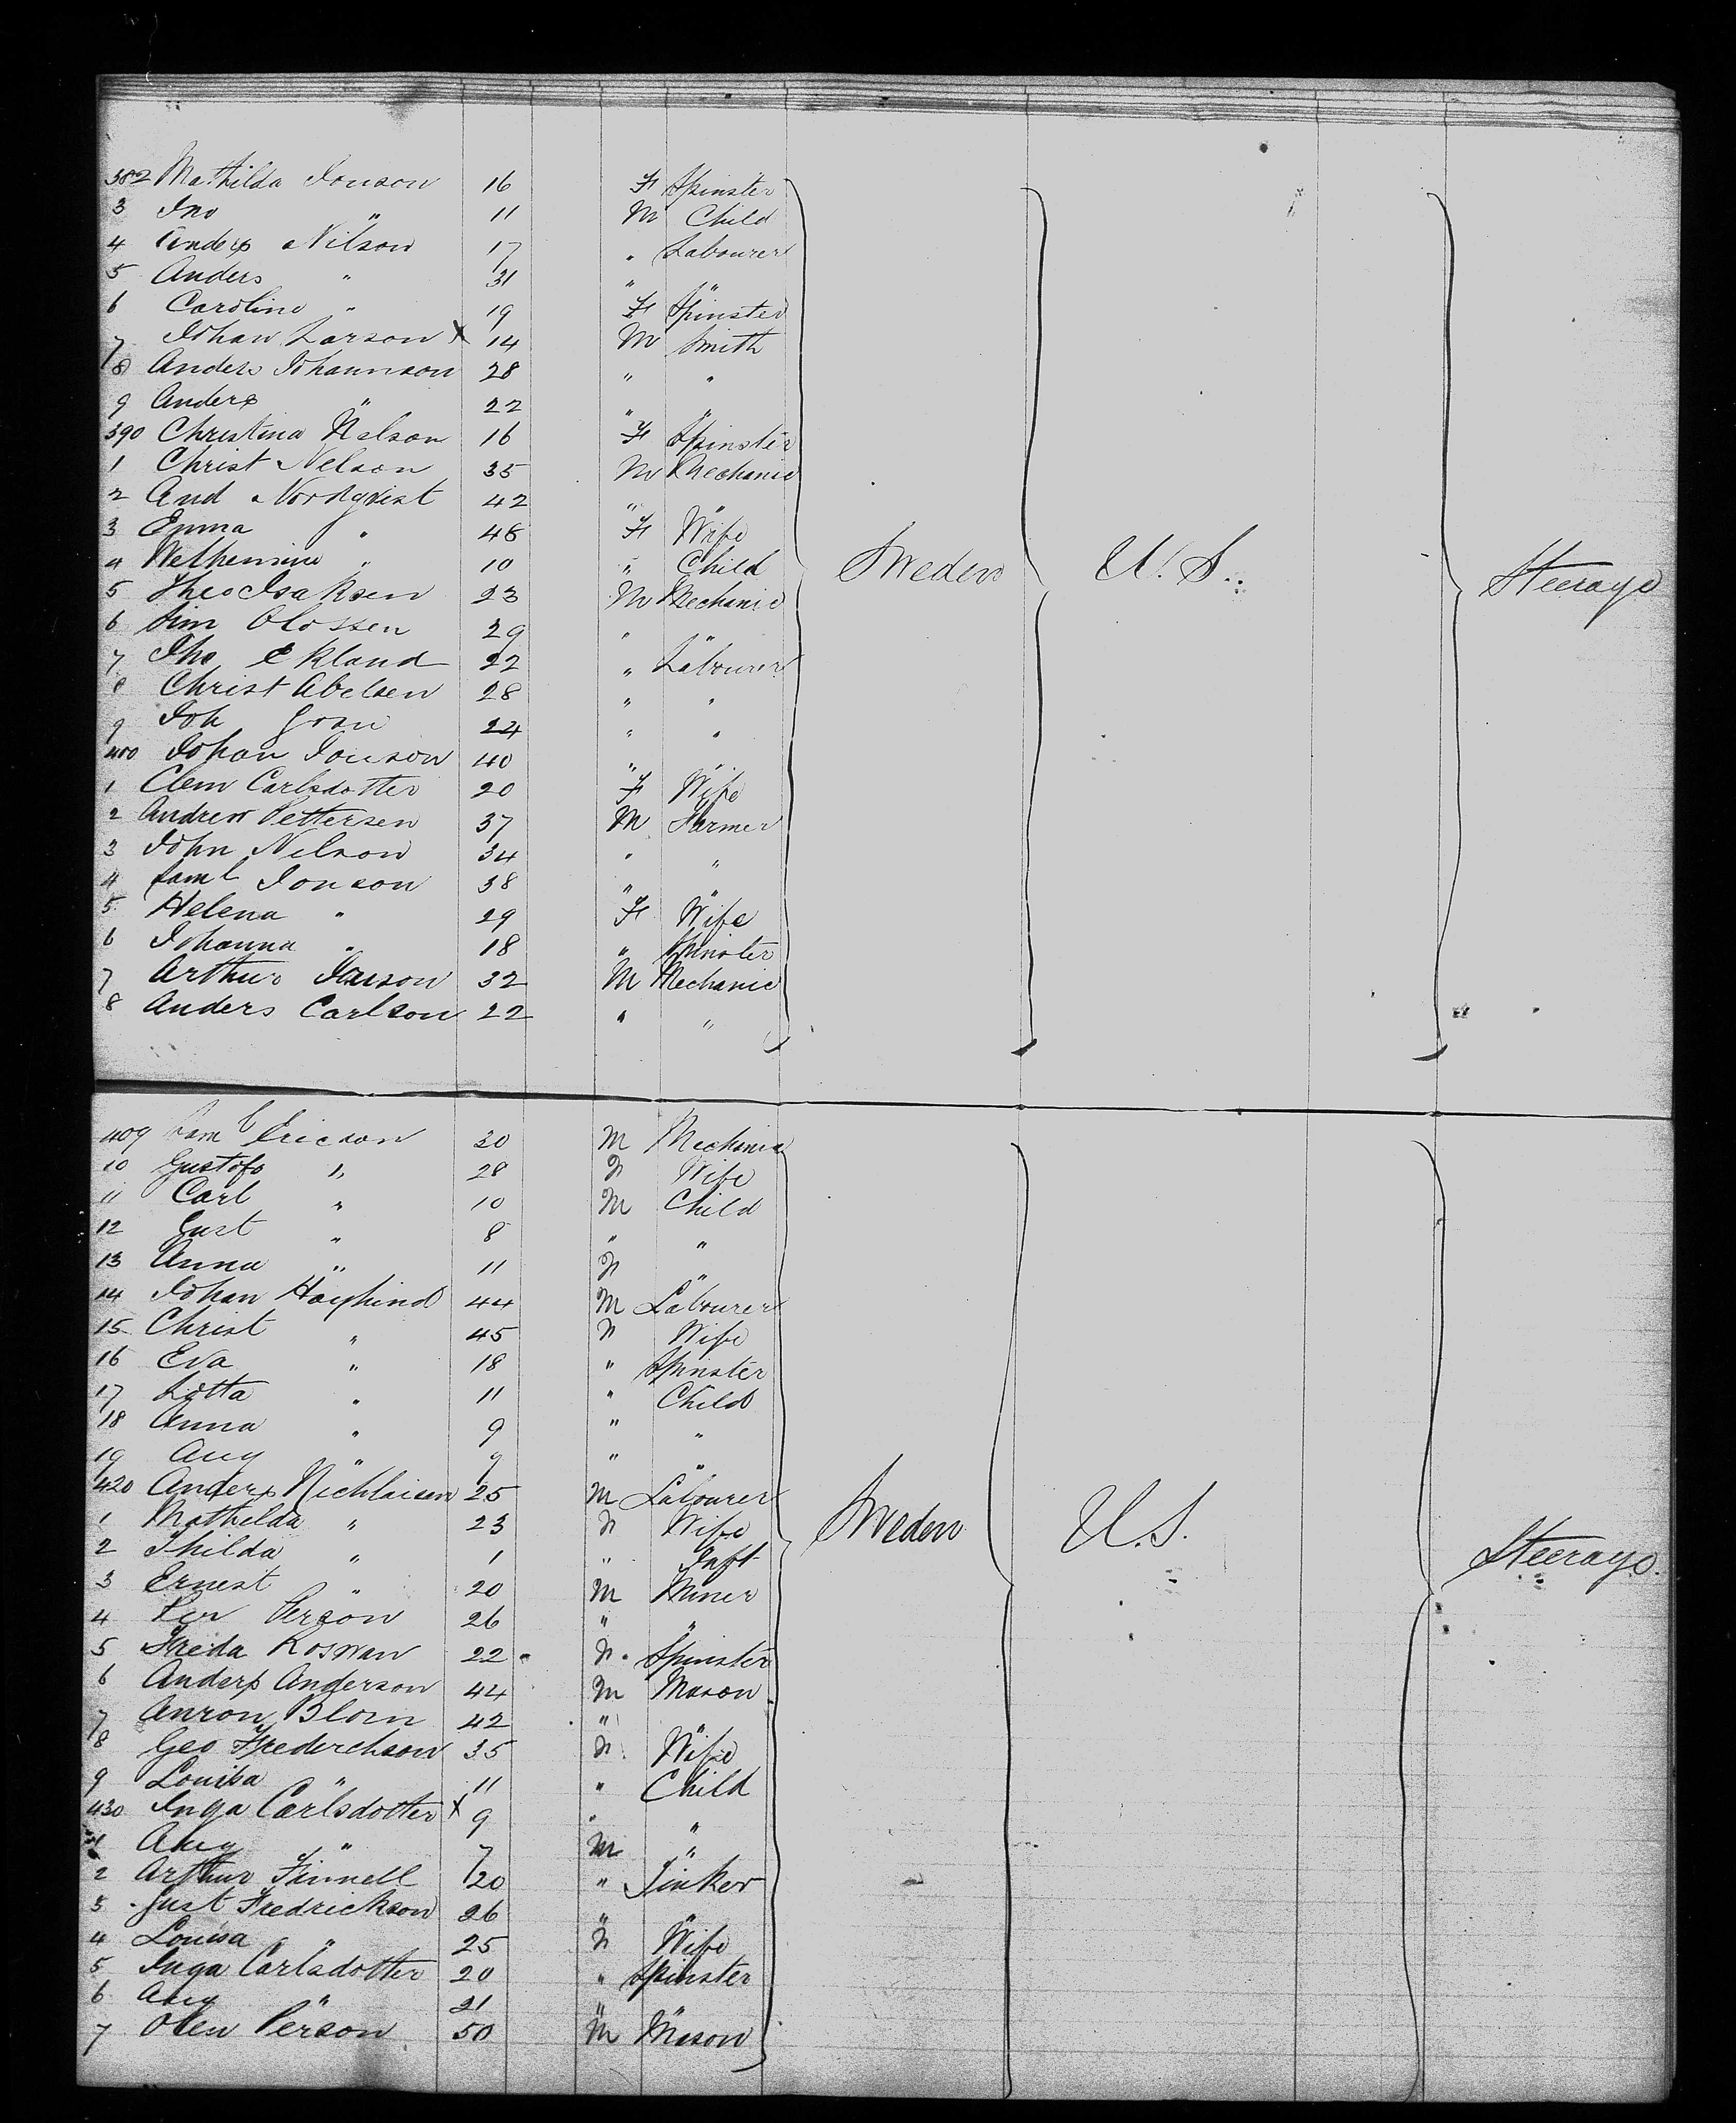 382 Mathilda Jonson 16 F Spinster
3 Jno " 11 M Child
4 Anders Nilson 17 " Labourer
5 Anders " 31 " "
6 Caroline " 19 F Spinster
7 Johan Larson x 14 M Smith
8 Anders Johannson 28 " "
9 Anders " 22 " "
390 Christina Nelson 16 F Spinster
1 Christ Nelson 35 M Mechanic
2 And Nordqvist 42 " "
3 Emma " 48 F Wife
4 Welhemine " 10 " Child
5 Theo Isaksen 23 M Mechanic
6 Sim Olossen 29 " "
7 Jho Ekland 22 " Labourer
8 Christ Abelsen 28 " "
9 Joh Gron 24 " "
400 Johan Jonson 40 " "
1 Clem Carlsdotter 20 F Wife
2 Andrew Pettersen 37 M Farmer
3 John Nelson 34 " "
4 Saml Jonson 38 " "
5 Helena " 29 F Wife
6 Johanna " 18 " Spinster
7 Arthur Jonson 32 M Mechanic
8 Anders Carlson 22 " "
Sweden U.S. Steerage
409 Saml Ericson 30 M Mechanic
10 Gustofo " 28 F Wife
11 Carl " 10 M Child
12 Gust " 8 " "
13 Anna " 11 F "
14 Johan 44 M Labourer
15 Christ " 45 F Wife
16 Eva " 18 " Spinster
17 Lotta " 11 " Child
18 Anna " 9 " "
19 Aug " 9 " "
420 Anders Nichlaisen 25 M Labourer
1 Mathelda " 23 F Wife
2 Thilda " 1 " Inft
3 Ernest " 20 M Miner
4 Per Person 26 " "
5 Freda Roswan 22 F Spinster
6 Anders Anderson 44 M Mason
7 Anron Blom 42 " "
8 Geo Frederchson 35 F Wife
9 Louisa " 11 " Child
430 Inga Carlsdotter x 9 " "
1 Aug " 7 M "
2 Arthur Finnell 20 " Tinker
3 Gust Fredrickson 26 " "
4 Louisa " 25 F Wife
5 Inga Carlsdotter 20 " Spinster
6 Aug " 21 " "
7 Olen Person 50 M Mason
Sweden U.S. Steerage.